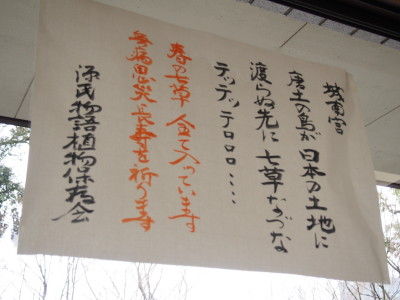 城南宮
唐土の鳥が日本の土地に
渡らぬ先に七草なづな
テッテッテロロロ・・・・
春の七草全て入っています
無病息災長寿を祈ります
源氏物語植物保存会